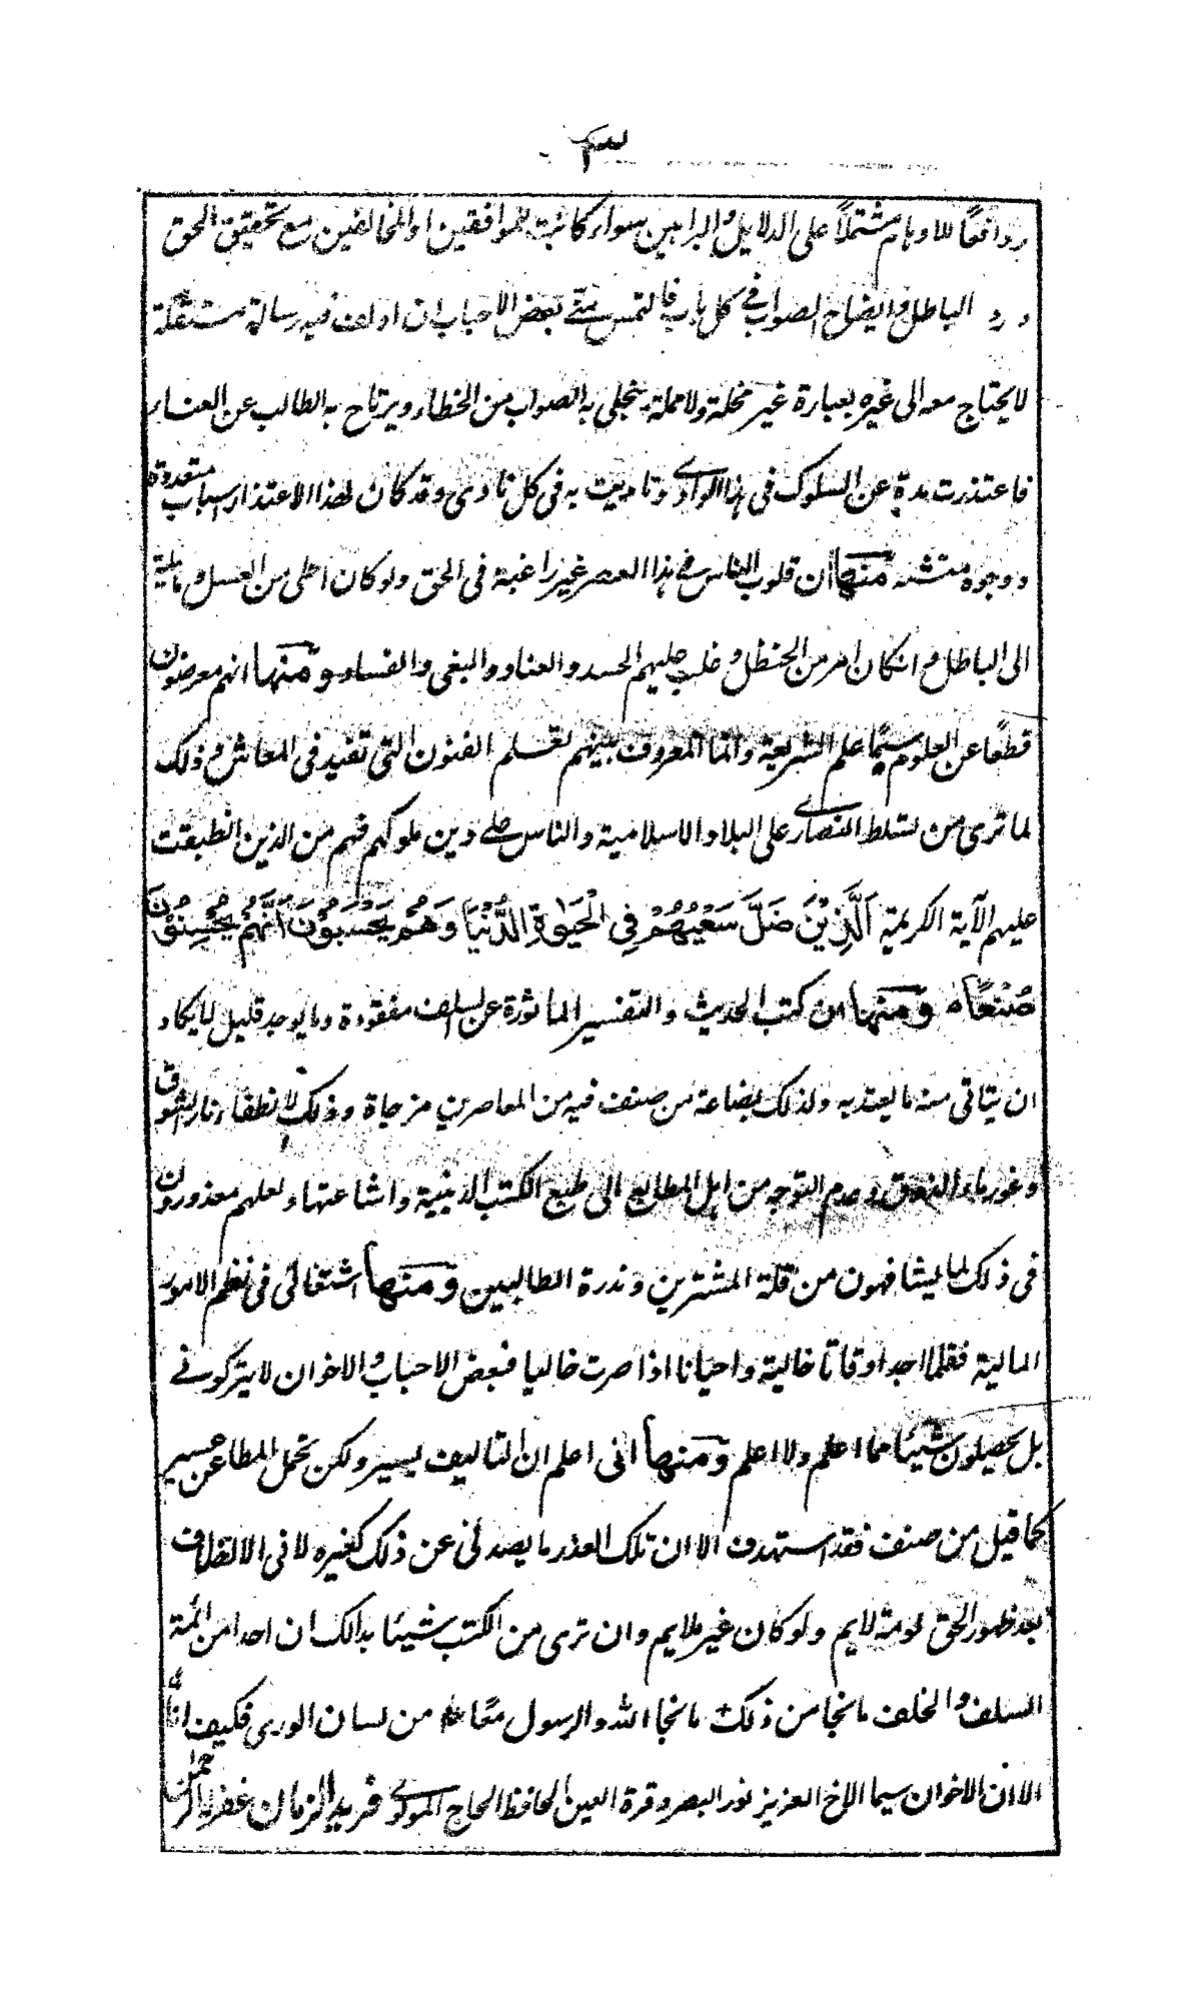 ٣
ودافعًا للاوهام مشتملاً على الدلايل والبراهين سواء كانت للموافقين او المخالفين مع تحقيق الحق
ورد الباطل وايضاح الصواب فى كل باب فالتمس منى بعض الاحباب ان اولف فيه رسالة مستقلة
لا يحتاج معه الى غيره بعبارة غير مخلة ولا مملة ينجلى به الصواب من الخطاء ويرتاح به الطالب عن العناء
فاعتذرت مدة عن السلوك فى هذا الوادى وناديت به فى كل نادى وقد كان لهذا الاعتذار اسباب متعددة
ووجوه منها ان قلوب الناس فى هذا العصر غير راغبة فى الحق ولو كان احلى من العسل ومايلة
الى الباطل وانكان امر من الحنظل وغلب عليهم الحسد والعناد والبغى والفساد ومنها انهم معرضون
قطعًا عن العلوم سيما علم الشريعة وانما المعروف بينهم تعلم الفنون التى تفيد فى المعاش وذلك
لما ترى من تسلط النصارى على البلاد الاسلامية والناس على دين ملوكهم فهم من الذين انطبقت
عليهم الآية الكريمة اَلَّذِيْنَ ضَلَّ سَعْيُهُمْ فِى الْحَيٰوةِ الدُّنْيَا وَهُمْ يَحْسَبُوْنَ اَنَّهُمْ يُحْسِنُوْنَ
صُنْعًا ه ومنها ان كتب الحديث والتفسير الماثورة عن السلف مفقودة وما يوجد قليل لا يكاد
ان يتاتى منه ما يعتد به ولذلك بضاعة من صنف فيه من المعاصرين مزجاة وذلك لانطفاء نار الشوق
وغور ماء الذوق وعدم التوجه من اهل المطابع الى طبع الكتب الدينية واشاعتها ولعلهم معذورون
فى ذلك لما يشافهون من قلة المشترين وندرة الطالبين ومنها اشتغالى فى نظم الامور
المالية فقلما اجد اوقاتا خالية واحيانا اذا صرت خاليا فبعض الاحباب والاخوان لا يتركونى
بل يحصلون شيئا مما اعلم ولا اعلم ومنها انى اعلم ان التاليف يسير ولكن تحمل المطاعن عسير
كما قيل من صنف فقد استهدف الا ان تلك العذر ما يصدنى عن ذلك كغيره لا فى الا
بعد ظهور الحق لومة لايم ولو كان غير ملايم وان ترى من الكتب شيئا بدالك ان احدا من ائمة
السلف والخلف ما نجا من ذلك ما نجا الله والرسول معًا من لسان الورى فكيف انا
الا ان الاخوان سيما الاخ العزيز نور البصر وقرة العين الحافظ الحاج المولوى فريد الزمان غفر له الرحمٰن